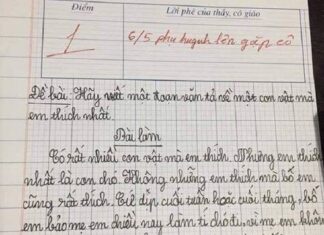 Điểm
Lời phê của thầy, cô giáo
1
6/5 phụ huynh lên gặp cô
Đề bài: Hãy viết một đoạn văn tả về một con vật mà
em thích nhất.
Bài làm
Có rất nhiều con vật mà em thích. Nhưng em thích
nhất là con chó. Không những em thích mà bố em
cũng rất thích. Cứ dịp cuối tuần hoặc cuối tháng, bố
em bảo mẹ em chiều nay làm tí chó đi, vì mẹ em không